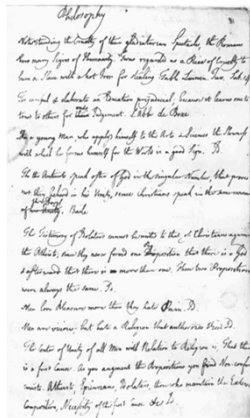 Philosophy
Notwithstanding the Cruelty of their gladiatorian Spectacles, the Romans
have many Signs of Humanity. Twas regarded as a Piece of Cruelty to
burn a Slave with a hot Iron for Stealing Table Linnen. Juv. Sat. 14
too elaborate an Education prejudicial; because it leaves one
to others for Judgement. L'Abbé de
Tis a young Man, who applys himself to the Arts & Sciences the
with which he forms himself for the World is a good Sign. D.
The Antients speak often of God in the singular Number, that proves
not they in his Unity, since Christians speak in the
of Baile
The Testimony of Idolaters cannot be united to that of Christians against
the Atheist, since they never formed one Proposition that there is a God
& afterward that there is no more than one. These two Propositions
were always the same. Id.
Men love Pleasure more than they hate Pain. D.
Men are vicious but hate a Religion that authorizes Vice. D.
The Center of Unity of all Men with Relation to Religion is, That there
is a first Cause. As you augment the Propositions you find Non-confor
mists. Atheists, Spinozans, Idolaters, those who maintain the Extension
Composition, Necessity of the first Cause &c.